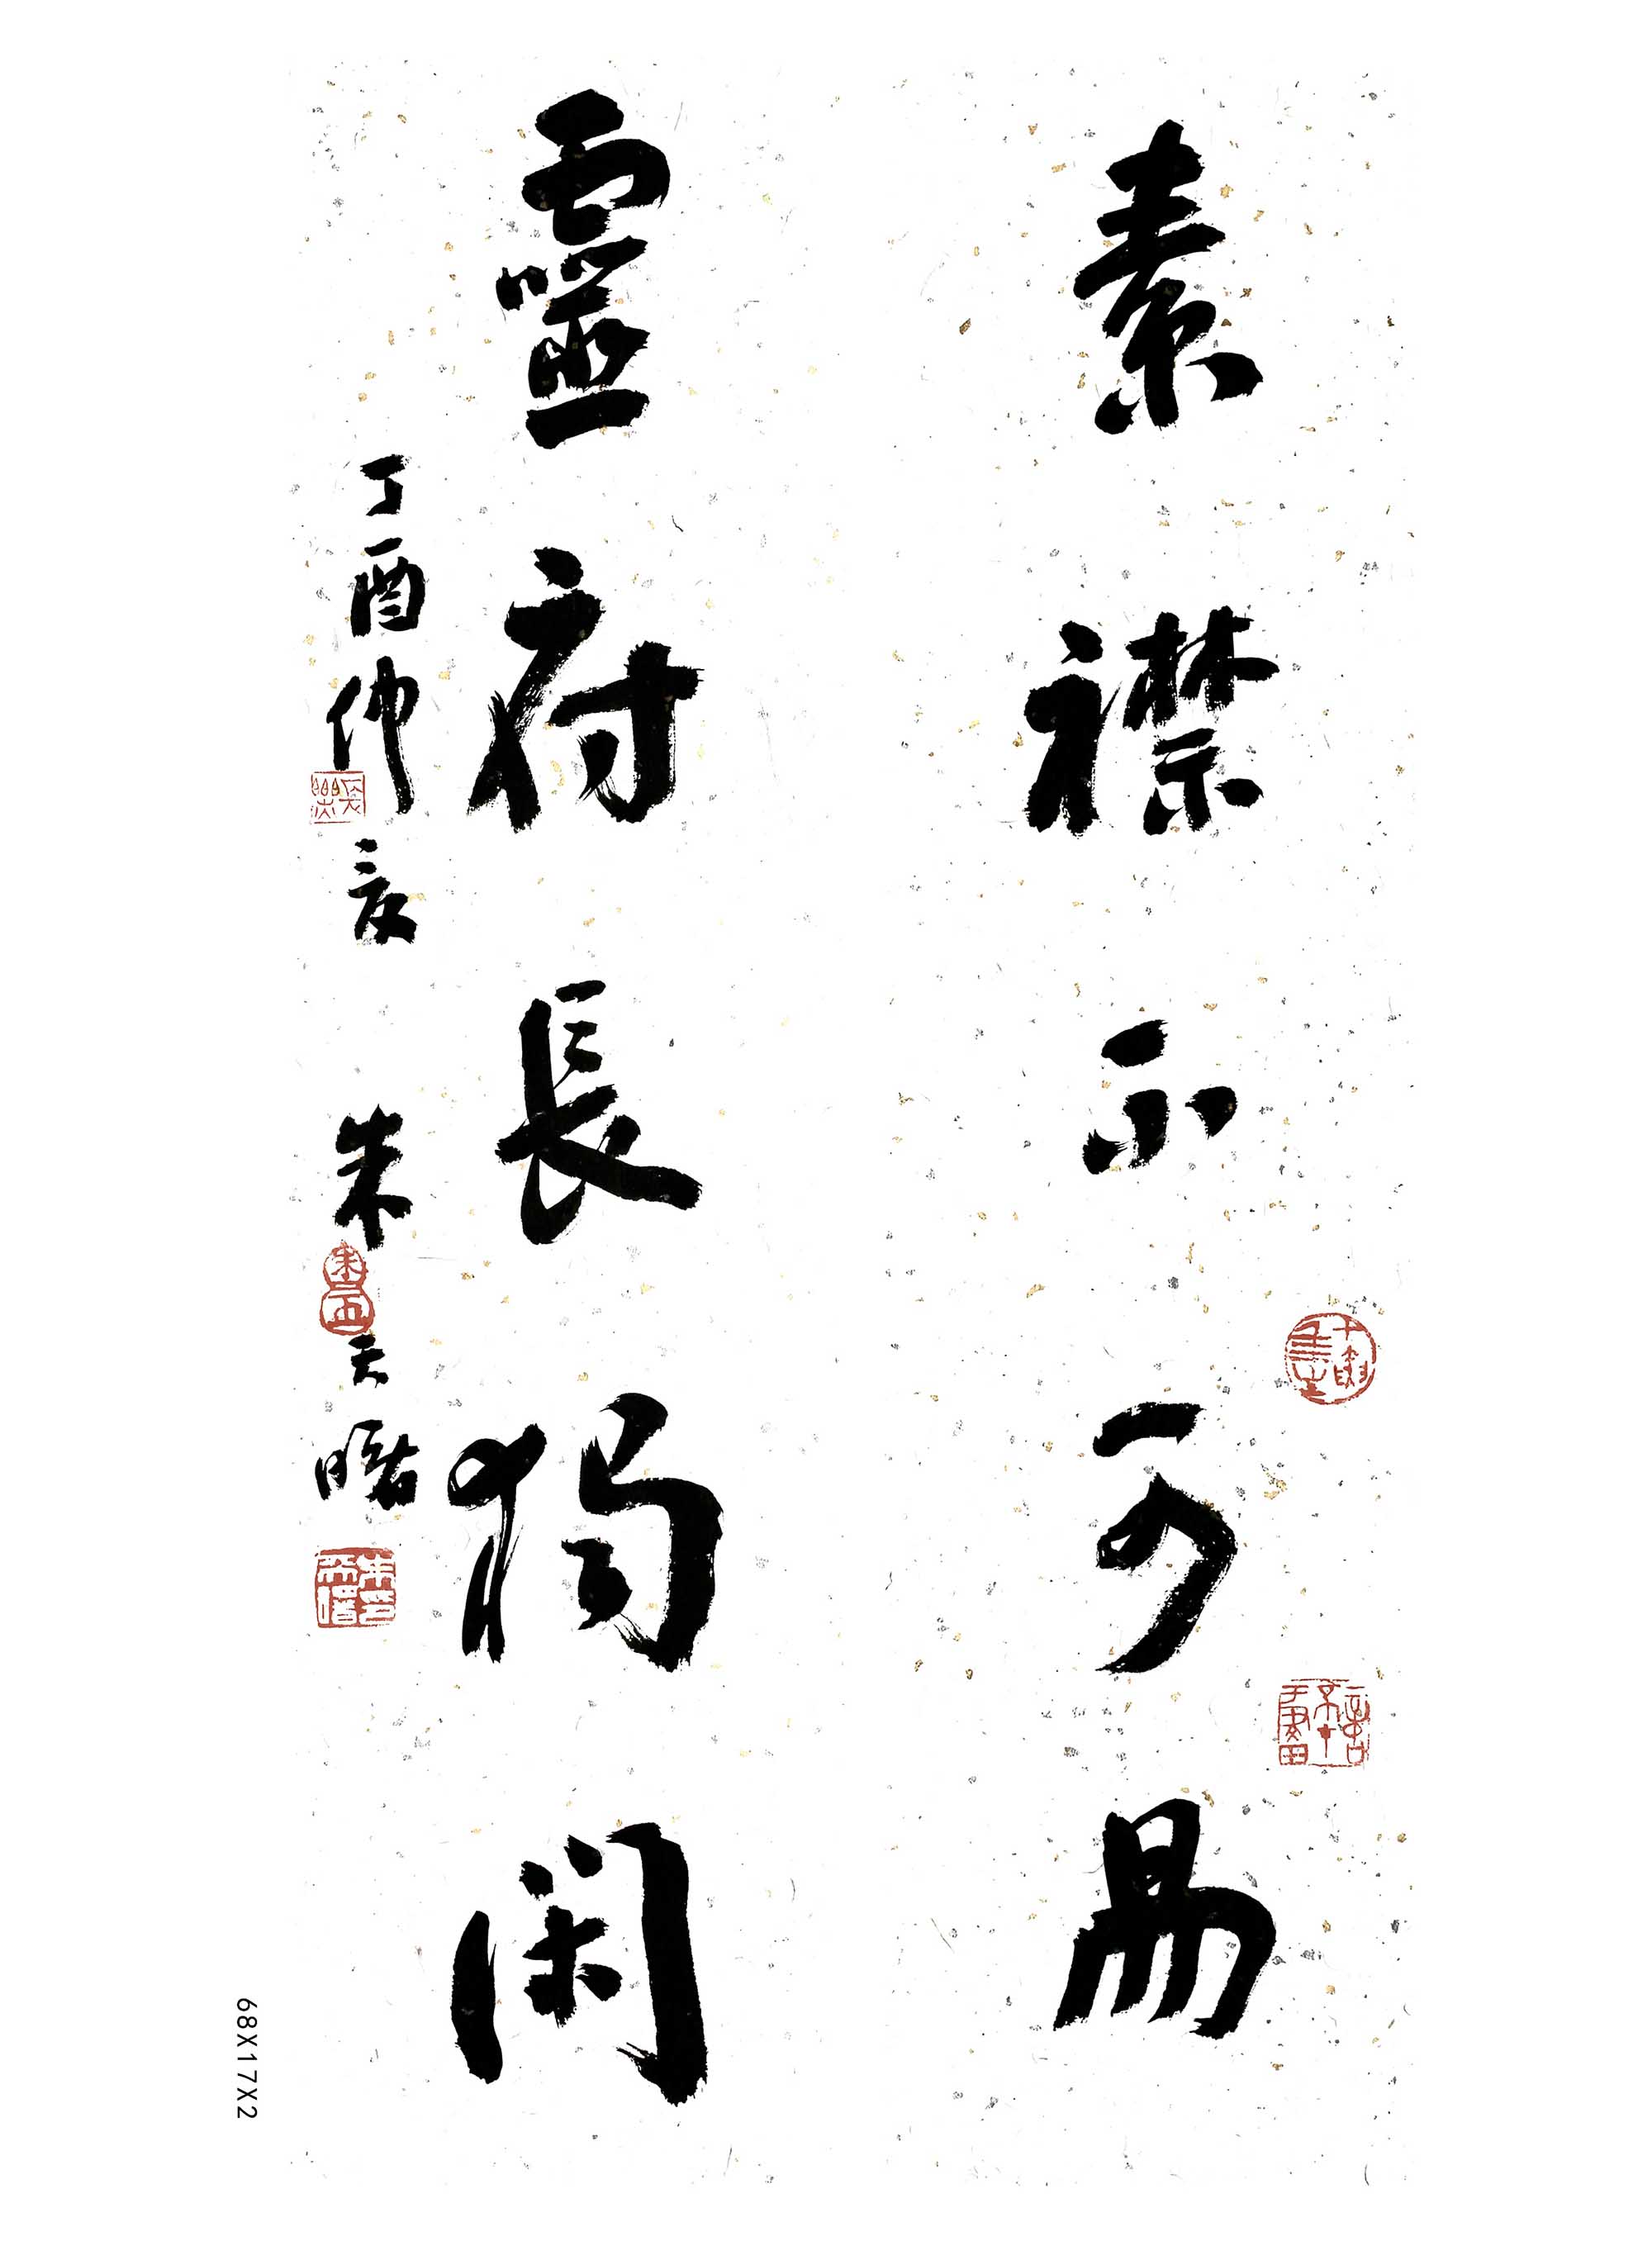 素襟不可易
靈府長獨閑
丁酉仲夏 朱天曙
68X17X2